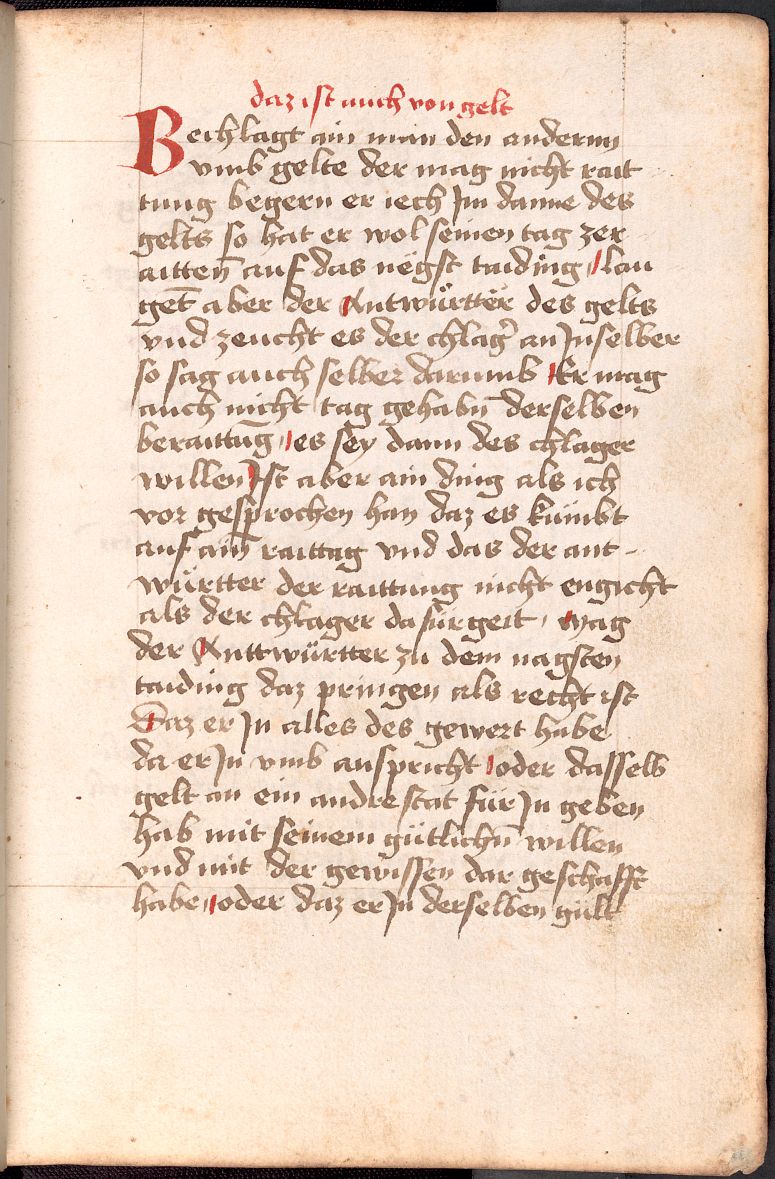 daz ist auch von gelt
Bechlagt ain man den andernn
vmb gelte der mag nicht rait
tung begern er iech Jm danne des
gelts so hat er wol seinen tag zer
aitten̄ auf das negst taiding lau
gent̄ aber der Antwürtter des gelts
vnd zeucht es der chlag̉ an Jn selber
so sag auch selber darumb Er mag
auch nicht tag gehabn̄ derselben
beraittūg es sey dann des chlager
willen Ist aber ain ding als ich
vor gesprochen han daz es kümbt
auf ain̄ raittag vnd das der ant-
württer der raittung nicht engicht
als der chlager da fürgeit, mag
der Anttwürtter zu dem nagsten
taiding daz pringen als recht ist
Daz er Jn alles des gewert habe
da er Jn vmb anspricht oder dasselb
gelt an ein andre stat für Jn geben
hab mit seinem gütlichn̄ willen
vnd mit der gewissen dar geschafft
habe, oder daz er Jn derselben gült